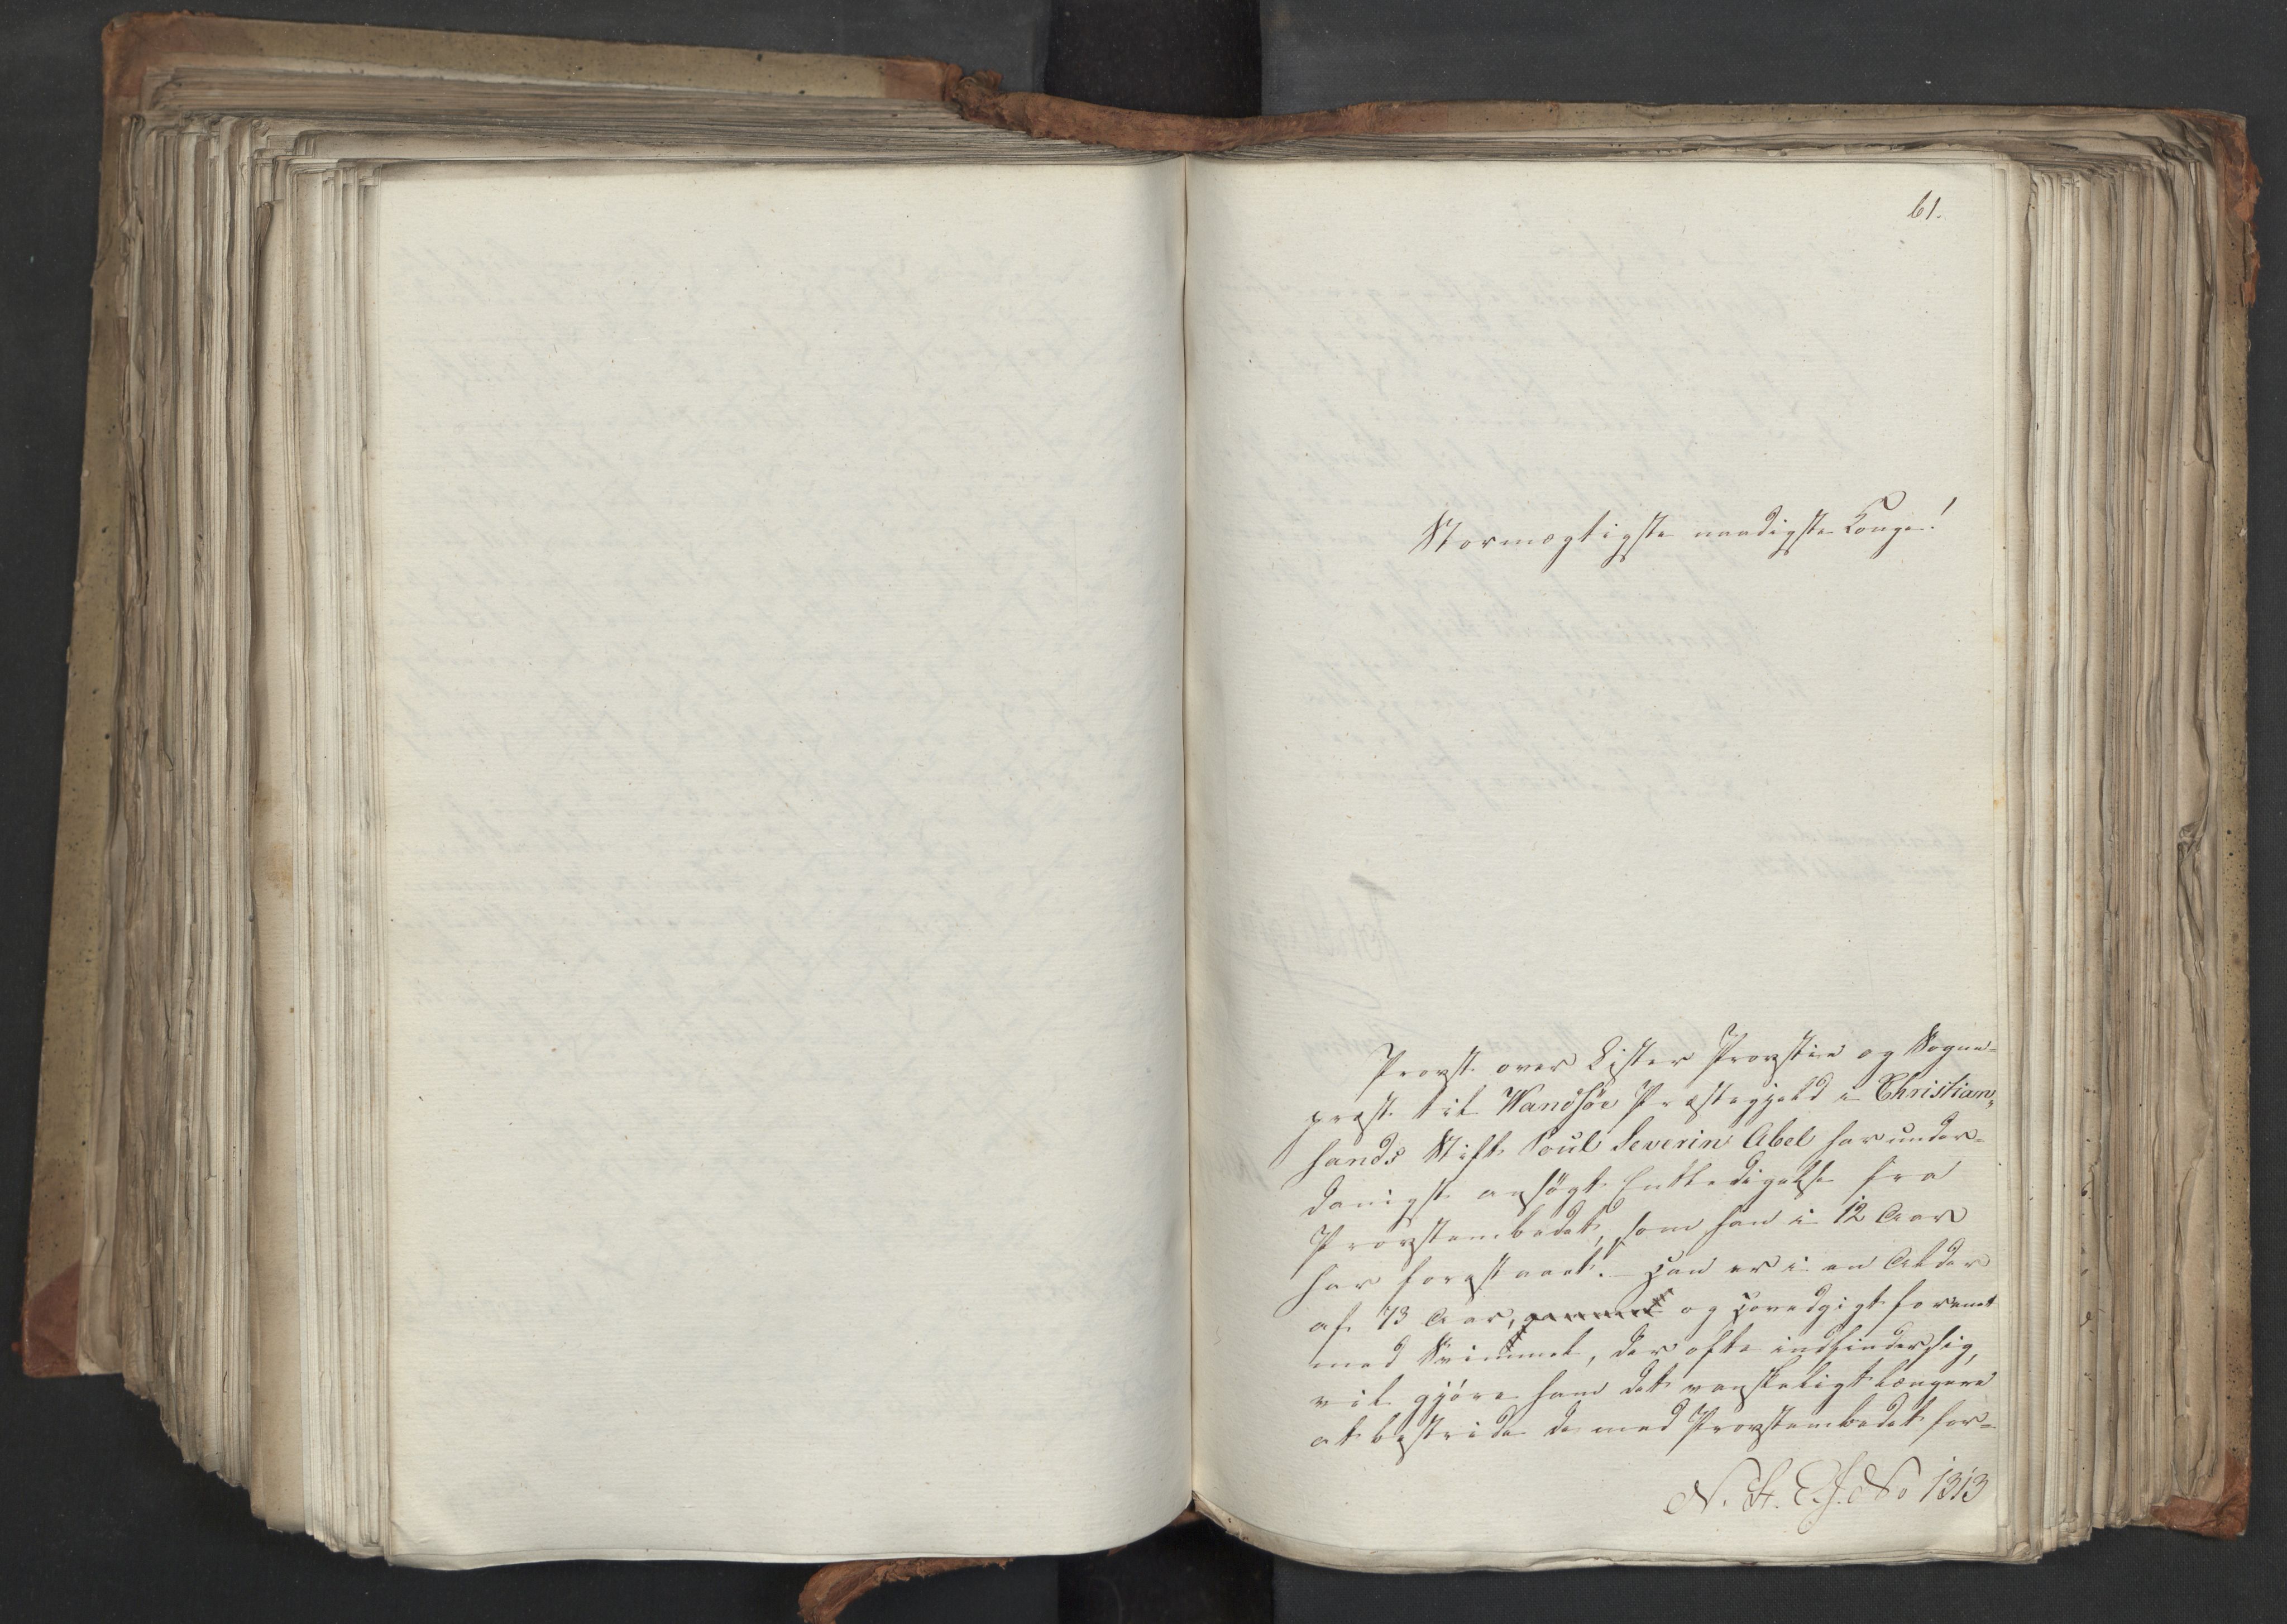 61.
Stormægtigste naadigste Konge!
Provst over Lister Provstie og Sogne-
præst til Wandsøe Præstegjeld i Christian-
sands Stift Poul Severin Abel har under-
danigst ansøgt Entledigelse fra
Provstembedet, som han i 12 Aar
har forestaaet. Han er i en Alder
af 73 Aar, og Hovedgigt forenet
med Svimmel, der ofte indfinder sig,
vil gjøre ham det vanskeligt længere
at bestride de med Provstembedet for-
N. St. E. J. No 1313